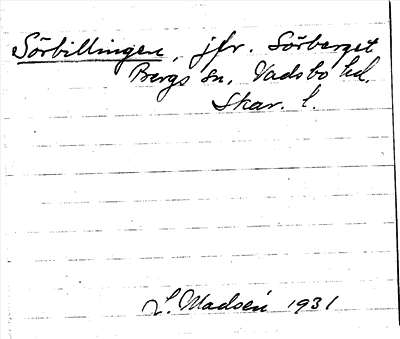 Sörbillingen, jfr. Sörberget
Bergs sn. Vadsbo hd.
Skar. l.
L. Madsén 1931